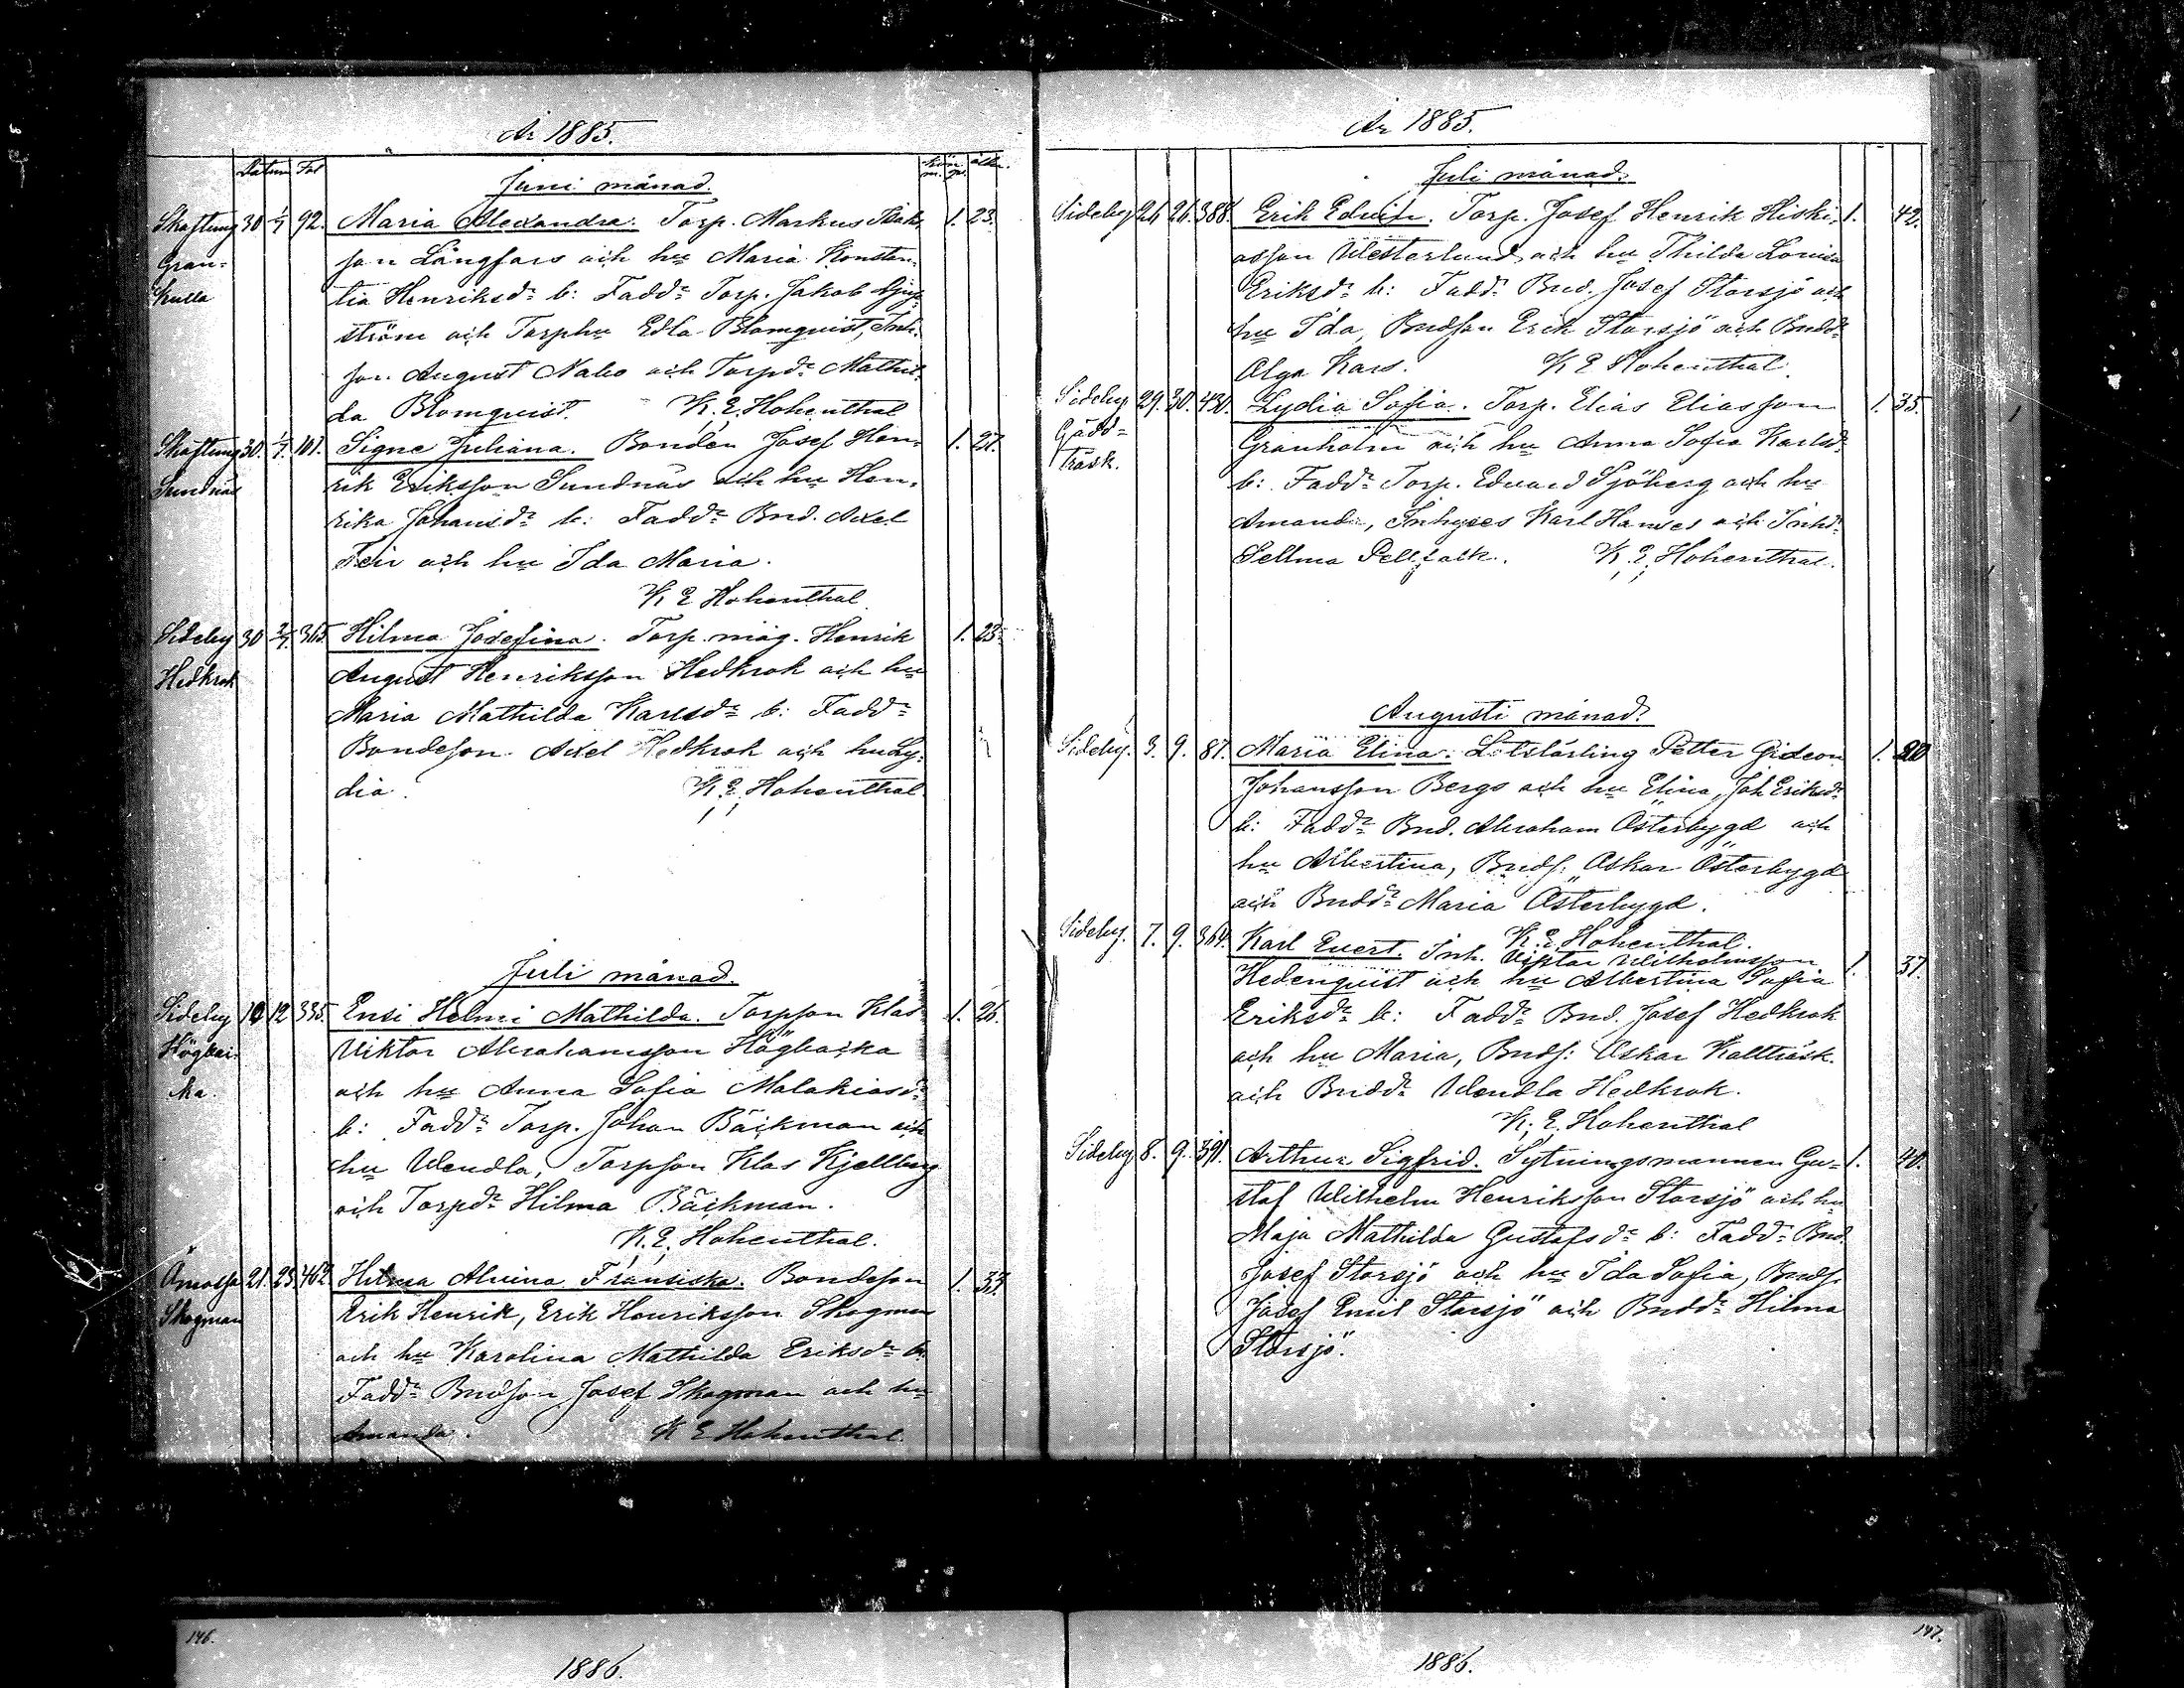 År 1885.
Datum Fol mk. qk. ålder.
Juni månad.
Skaftung 30 1/7 92. Maria Alexandra. Torp. Markus Isaks- 1. 23.
Gran- son Långfors och hu Maria Konstan-
kulla tia Henriksdr b: Faddr Torp. Jakob Ljung-
ström och Torphu Edla Blomquist, Inh.
son August Nabo och Torpdr Mathil-
da Blomquist. K. E. Hohenthal
Skaftung 30. 1/7. 101. Signe Juliana. Bonden Josef Hen- 1. 27.
Sundnäs rik Eriksson Sundnäs och hu Hen-
rika Johansdr b: Faddr Bnd. Axel
Teir och hu Ida Maria.
K E Hohenthal
Sideby 30 2/7. 365 Hilma Josefina. Torp. måg. Henrik 1. 23.
Hedkrok August Henriksson Hedkrok och hu
Maria Mathilda Karlsdr b: Faddr
Bondeson Axel Hedkrok och hu Ly-
dia. K. E. Hohenthal
Juli månad.
Sideby 10 12 335. Ensi Helmi Mathilda. Torpson Klas 1. 26.
Högbac- Viktor Abrahamsson Högbacka
ka. och hu Anna Sofia Malakiasdr
b: Faddr Torp. Johan Bäckman och
hu Wendla, Torpson Klas Kjellberg
och Torpdr Hilma Bäckman.
K. E. Hohenthal.
Åmossa 21. 23 462. Hilma Alvina Fransiska. Bondeson 1. 33.
Skogman Erik Henrik, Erik Henriksson Skogman
och hu Karolina Mathilda Eriksdr b:
Faddr Bndson Josef Skogman och hu
Amanda. K E Hohenthal.
År 1885.
Juli månad.
Sideby 24 26. 388. Erik Edvin. Torp. Josef Henrik Hiski- 1. 42.
asson Westerlund och hu Thilda Lovisa
Eriksdr b: Faddr Bnd. Josef Storsjö och
hu Ida, Bndson Erik Storsjö och Bnddr
Olga Kars. K E Hohenthal.
Sideby 29. 30. 430. Lydia Sofia. Torp. Elias Eliasson 1. 35.
Gädd- Granholm och hu Anna Sofia Karlsdr
träsk. b: Faddr Torp. Edvard Sjöberg och hu
Amanda, Inhyses Karl Hannes och Inhdr
Sellma Pellfolk. K. E. Hohenthal.
Augusti månad.
Sideby. 3. 9. 87. Maria Elina. Lotslärling Petter Gideon 1. 20
Johansson Bergs och hu Elina, Joh Eriksdr
b: Faddr Bnd. Abraham Österbygd och
hu Albertina, Bnds: Oskar Österbygd
och Bnddr Maria Österbygd.
K. E. Hohenthal.
Sideby. 7. 9. 364. Karl Evert. Inh. Viktor Wilhelmsson 1. 37.
Hedenquist och hu Albertina Sofia
Eriksdr b: Faddr Bnd. Josef Hedkrok
och hu Maria, Bnds: Oskar Kallträsk
och Bnddr Wendla Hedkrok.
K. E. Hohenthal
Sideby 8. 9. 391. Arthur Sigfrid. Sytningsmannen Gu- 1. 40.
staf Wilhelm Henriksson Storsjö och hu
Maja Mathilda Gustafsdr b: Faddr Bnd.
Josef Storsjö och hu Ida Sofia, Bnds.
Josef Emil Storsjö och Bnddr Hilma
Storsjö.
146.
1886.
147.
1886.